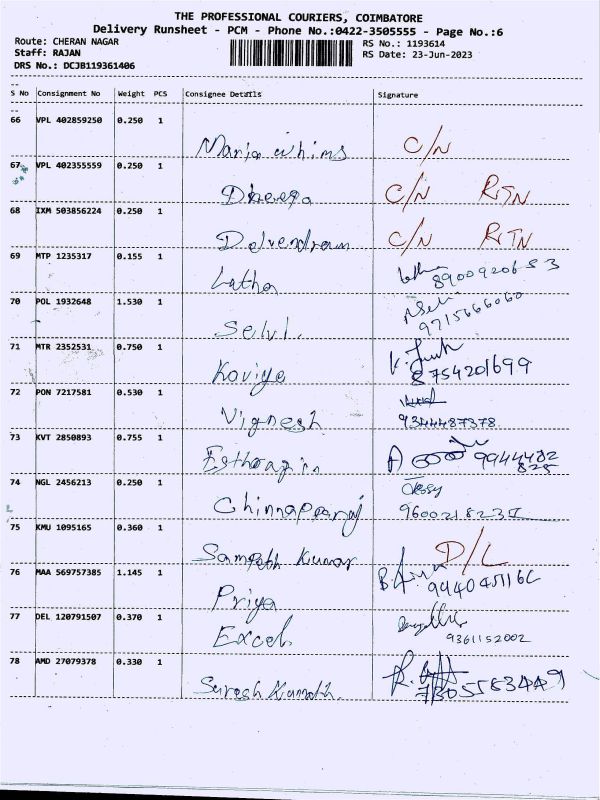 THE PROFESSIONAL COURIERS, COIMBATORE
Delivery Runsheet - PCM - Phone No.:0422-3505555 - Page No.:6
Route: CHERAN NAGAR
RS No.: 1193614
Staff: RAJAN
RS Date: 23-Jun-2023
DRS No.: DCJB119361406
S No Consignment No Weight PCS Consignee Details Signature
66 VPL 402859250 0.250 1
C/N
67 VPL 402355559 0.250 1
Dheepa C/N RTN
68 IXM 503856224 0.250 1
C/N RTN
69 MTP 1235317 0.155 1
Latha
70 POL 1932648 1.530 1
Selvi 9715666060
71 MTR 2352531 0.750 1
Kaviya 8754201699
72 PON 7217581 0.530 1
Vignesh 9344487378
73 KVT 2850893 0.755 1
9944482
825
74 NGL 2456213 0.250 1
Chinnapparaj
75 KMU 1095165 0.360 1
Sampath Kumar D/L
76 MAA 569757385 1.145 1
Priya
77 DEL 120791507 0.370 1
Excel 9361152002
78 AMD 27079378 0.330 1
Suresh